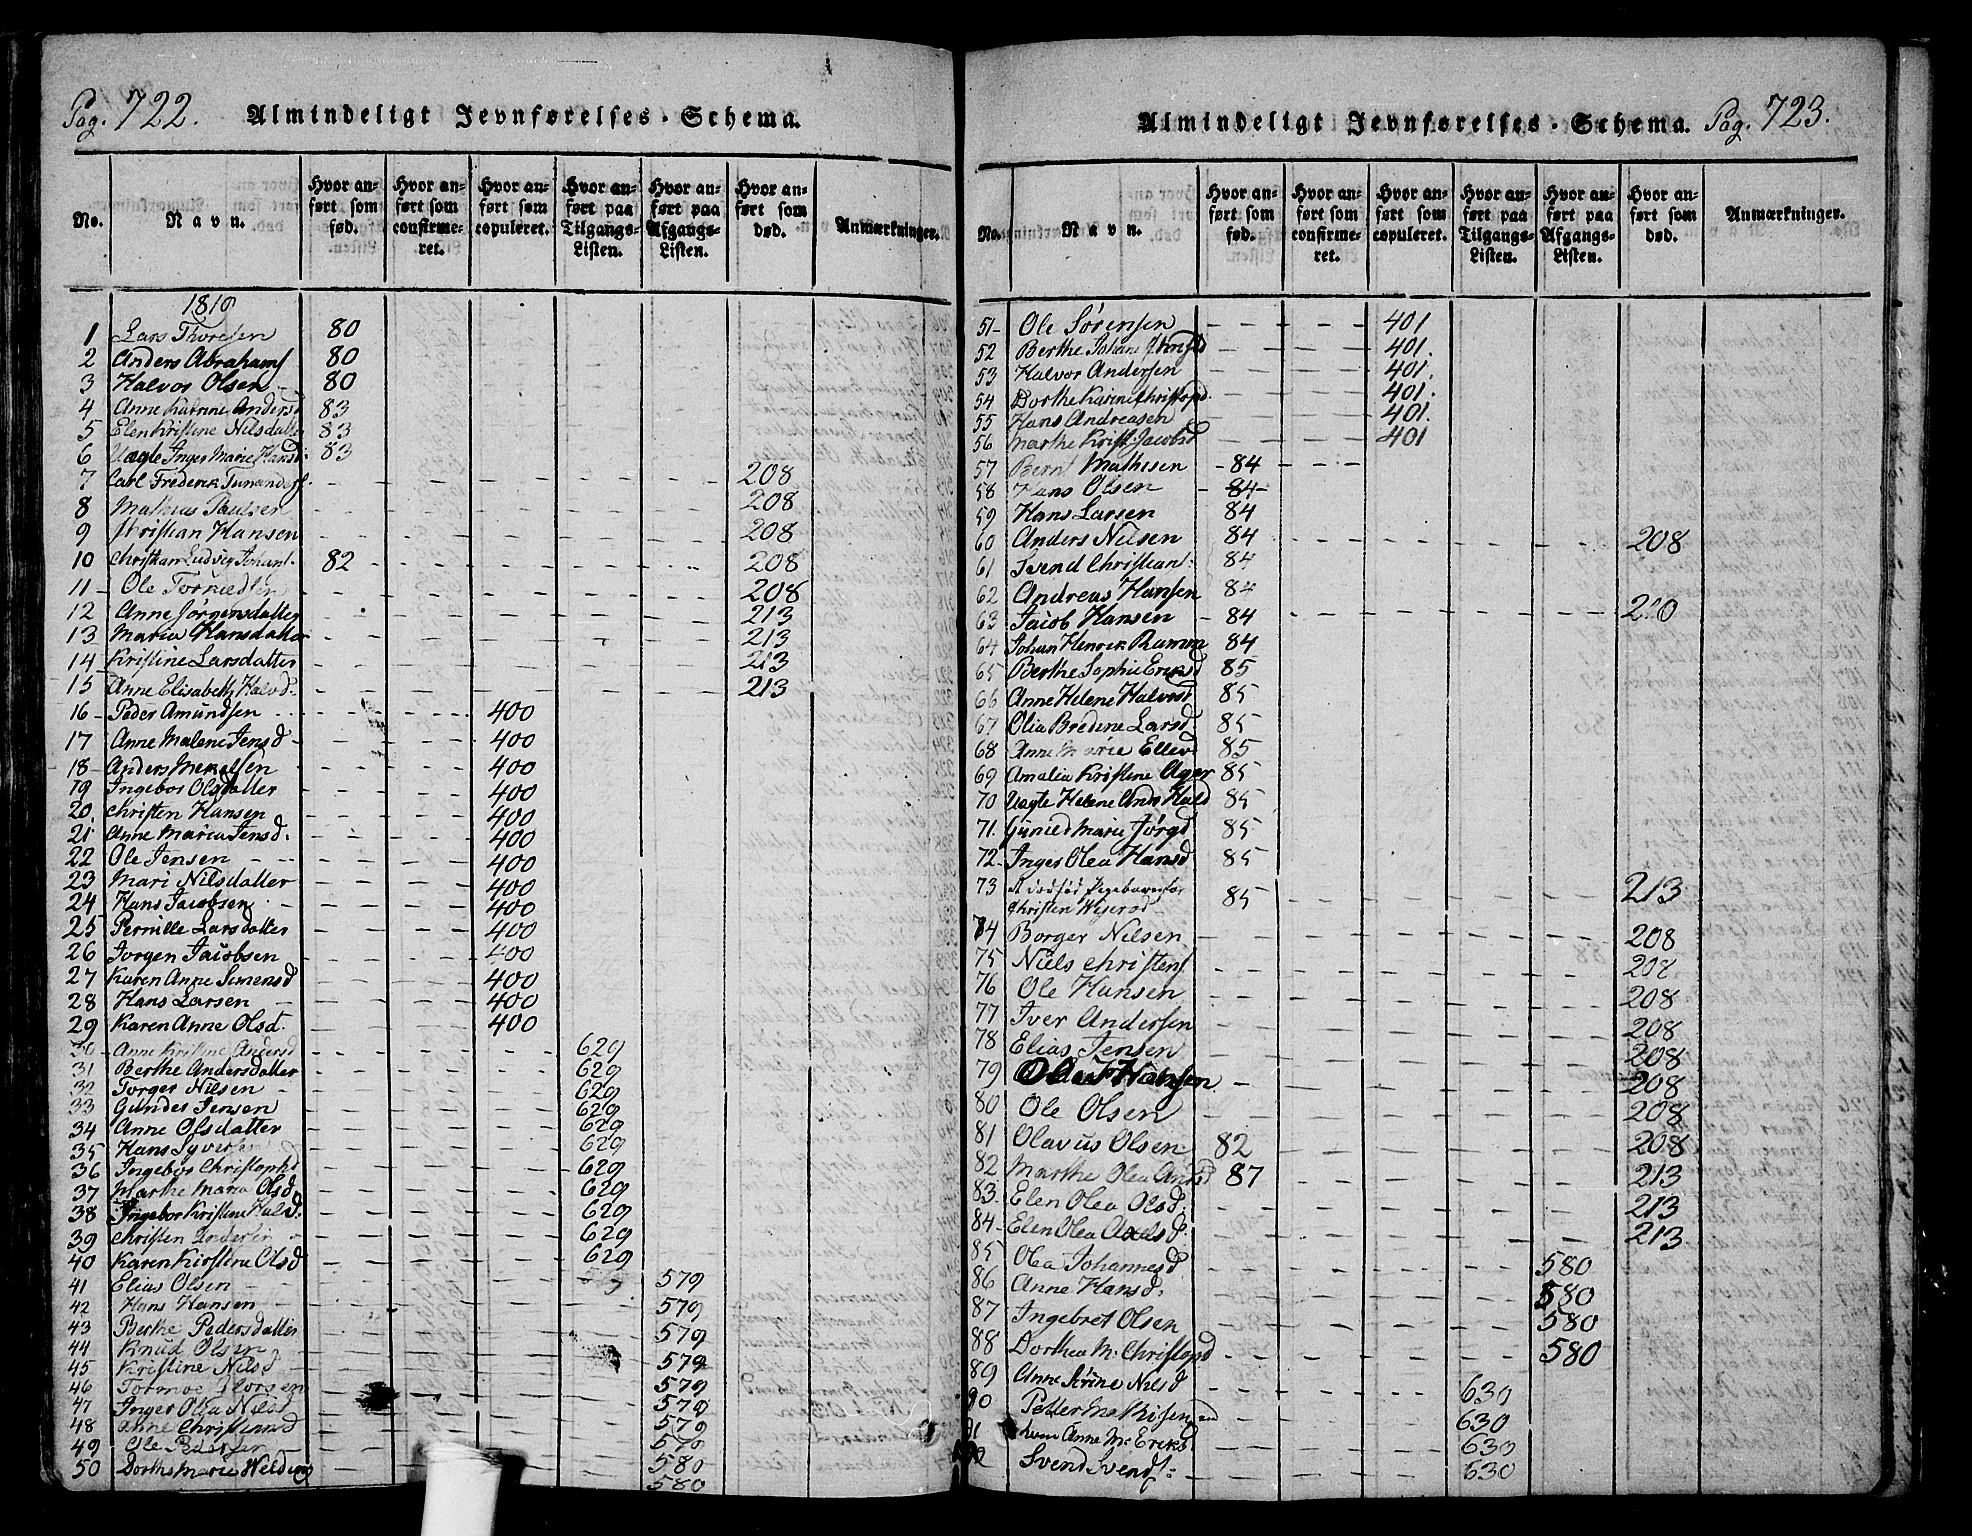 Pag. 722.
Almindeligt Jevnførelses-Schema.
No.
Navn.
Hvor anført som fød.
Hvor anført som confirmeret.
Hvor anført som copuleret.
Hvor anført paa Tilgangs-Listen.
Hvor anført paa Afgangs-Listen.
Hvor anført som død.
Anmærkninger.
1819
1 Lars Thoresen 80
2 Anders Abrahams 80
3 Halvor Olsen 80
4 Anne Katrine Andersd 83
5 Elen Kristine Nilsdatter 83
6 Uægte Inger Marie Hansd: 83
7 Carl Frederik 208
8 Mathias Paulsen 208
9 Christian Hansen 208
10 Christian Ludvig Johans. 82 208
11 Ole 208
12 Anne Jørgensdatter 213
13 Maria Hansdatter 213
14 Kristine Larsdatter 213
15 Anne Elisabeth Halvd. 213
16 Peder Amundsen 400
17 Anne Malene Jensd 400
18 Anders Mekelsen 400
19 Ingebor Olsdatter 400
20. Christen Hansen 400
21. Anne Maria Jensd. 400
22 Ole Jensen 400
23 Mari Nilsdatter 400
24 Hans Jacobsen 400
25 Pernille Larsdatter 400
26 Jorgen Jacobsen 400
27 Karen Anne Simensd 400
28 Hans Larsen 400
29 Karen Anne Olsd. 400
30 Anne Kristine Andersd 629
31 Berthe Andersdatter 629
32 Torger Nilsen 629
33 Gunder Jensen 629
34 Anne Olsdatter 629
35 Hans 629
36 Ingebor Christophd 629
37 Marthe Maria Olsd 629
38 Ingebor Kristine Hald. 629
39 Christen 629
40 Karen Kirstine Olsd 629
41 Elias Olsen 579
42 Hans Hansen 579
43 Berthe Pedersdatter 579
44 Knud Olsen 579
45 Kristine Nilsd 579
46 579
47 Inger Olea Nilsd 579
48 Anne Christensd 579
49 Ole 580
50 Dorthe Marie Welding 580
Almindeligt Jevnførelses-Schema. Pag. 723.
No.
Navn.
Hvor anført som fød.
Hvor anført som confirmeret.
Hvor anført som copuleret.
Hvor anført paa Tilgangs-Listen.
Hvor anført paa Afgangs-Listen.
Hvor anført som død.
Anmærkninger.
51 Ole Sørensen 401
52 Berthe Johane 401.
53 Halvor Andersen 401.
54 Dorthe Karine Christopd. 401.
55 Hans Andreasen 401.
56 Marthe Krist. Jacobsd 401
57 Bernt Mathisen 84
58 Hans Olsen 84
59 Hans Larsen 84
60 Anders Nilsen 84 208
61 Svend Christians: 84
62 Andreas Hansen 84
63 Jacob Hansen 84 210
64 Johan Henrik Ramm 84
65 Berthe Sophie Eriksd 85
66 Anne Helene Halvosd 85
67 Olia Bredine Larsd. 85
68 Anne Marie Ellevd 85
69 Amalia Kristine Ager 85
70 Uægte Helene Ands Hald 85
71. Guned Marie Jørgd 85
72 Inger Olea Hansd 85
73 dødfød Pigebarn for
Christen 85 213
74 Borger Nilsen 208
75 Niels Christens 208
76 Ole Hansen 208
77 Iver Andersen 208
78 Elias Jensen 208
79 Hansen 208
80 Ole Olsen 208
81 Olavus Olsen 82 208
82 Marthe Olea Andsd 87 213
83 Elen Olea Olsd. 213
84 Elen Olea Axelsd. 213
85 Olea Johannesd 580
86 Anne Hansd. 580
87 Ingebret Olsen 580
88 Dorthea M. Christopd 580
89 Anne Sirine Nilsd 630
90 Petter Mathisen 630
91 Anne M. Eriksd 630
92 Svend Svends: 630